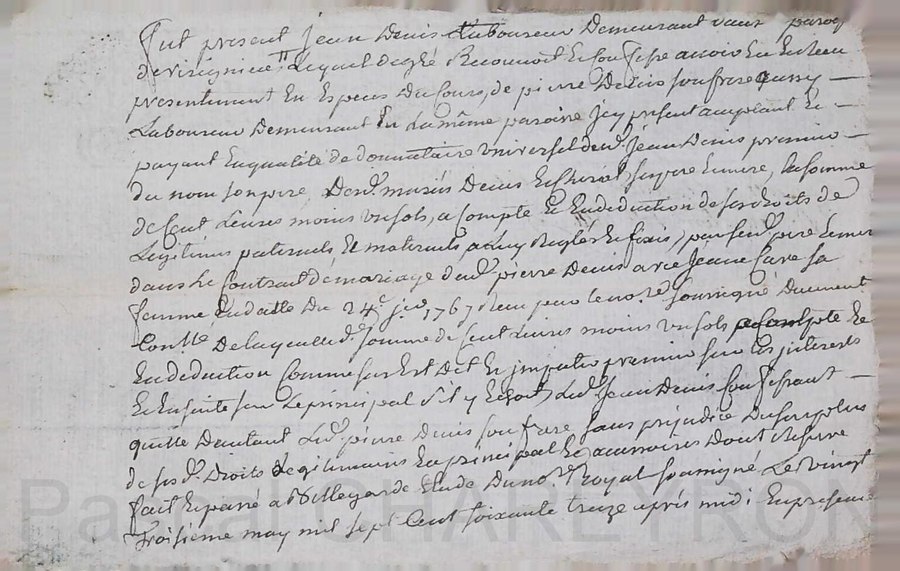 Fut present Jean Denis Laboureur Demeurant paroy
de lequel degré Reconnoit Et Confesse avoir Eu Et Receu
presentement En Especes Du Cours, de pierre Denis son frere aussy
Laboureur Demeurant En La même paroisse Icy present acceptant Et
payant En qualité de donnataire universel de feu Jean Denis premier
du nom son pere, De marié Denis Et ses pere Et mere, La somme
de Cent Livres moins un sols, a Compte Et En deduction de ses droits de
Legitimes paternels Et maternels a Luy Reglés Et fixés, par feu pere Et mere
dans Le Contrat de mariage dud. pierre Denis avec Jeanne sa
femme, En datte Du 24e 1767 Receu par le no.re Soussigné Duement
Con.llé De laquelle d. somme de Cent Livres moins un sols a Compte Et
En deduction Comme sus Est Dit Et premier sur Les jnterests
Et Ensuitte sur Le principal s'il y Echoit, Led. Jean Denis Confessant
quitte D'autant Led. pierre Denis son frere sans prejudice Du surplus
de sesd. Droits Legitimaires En principal Et accessoires Dont Reserve
fait Et passé a Villegarde Etude Du no.re Royal soussigné Le vingt
Troisieme may mil sept Cent soixante treize après midi En presence
Pascal CHAREYRON